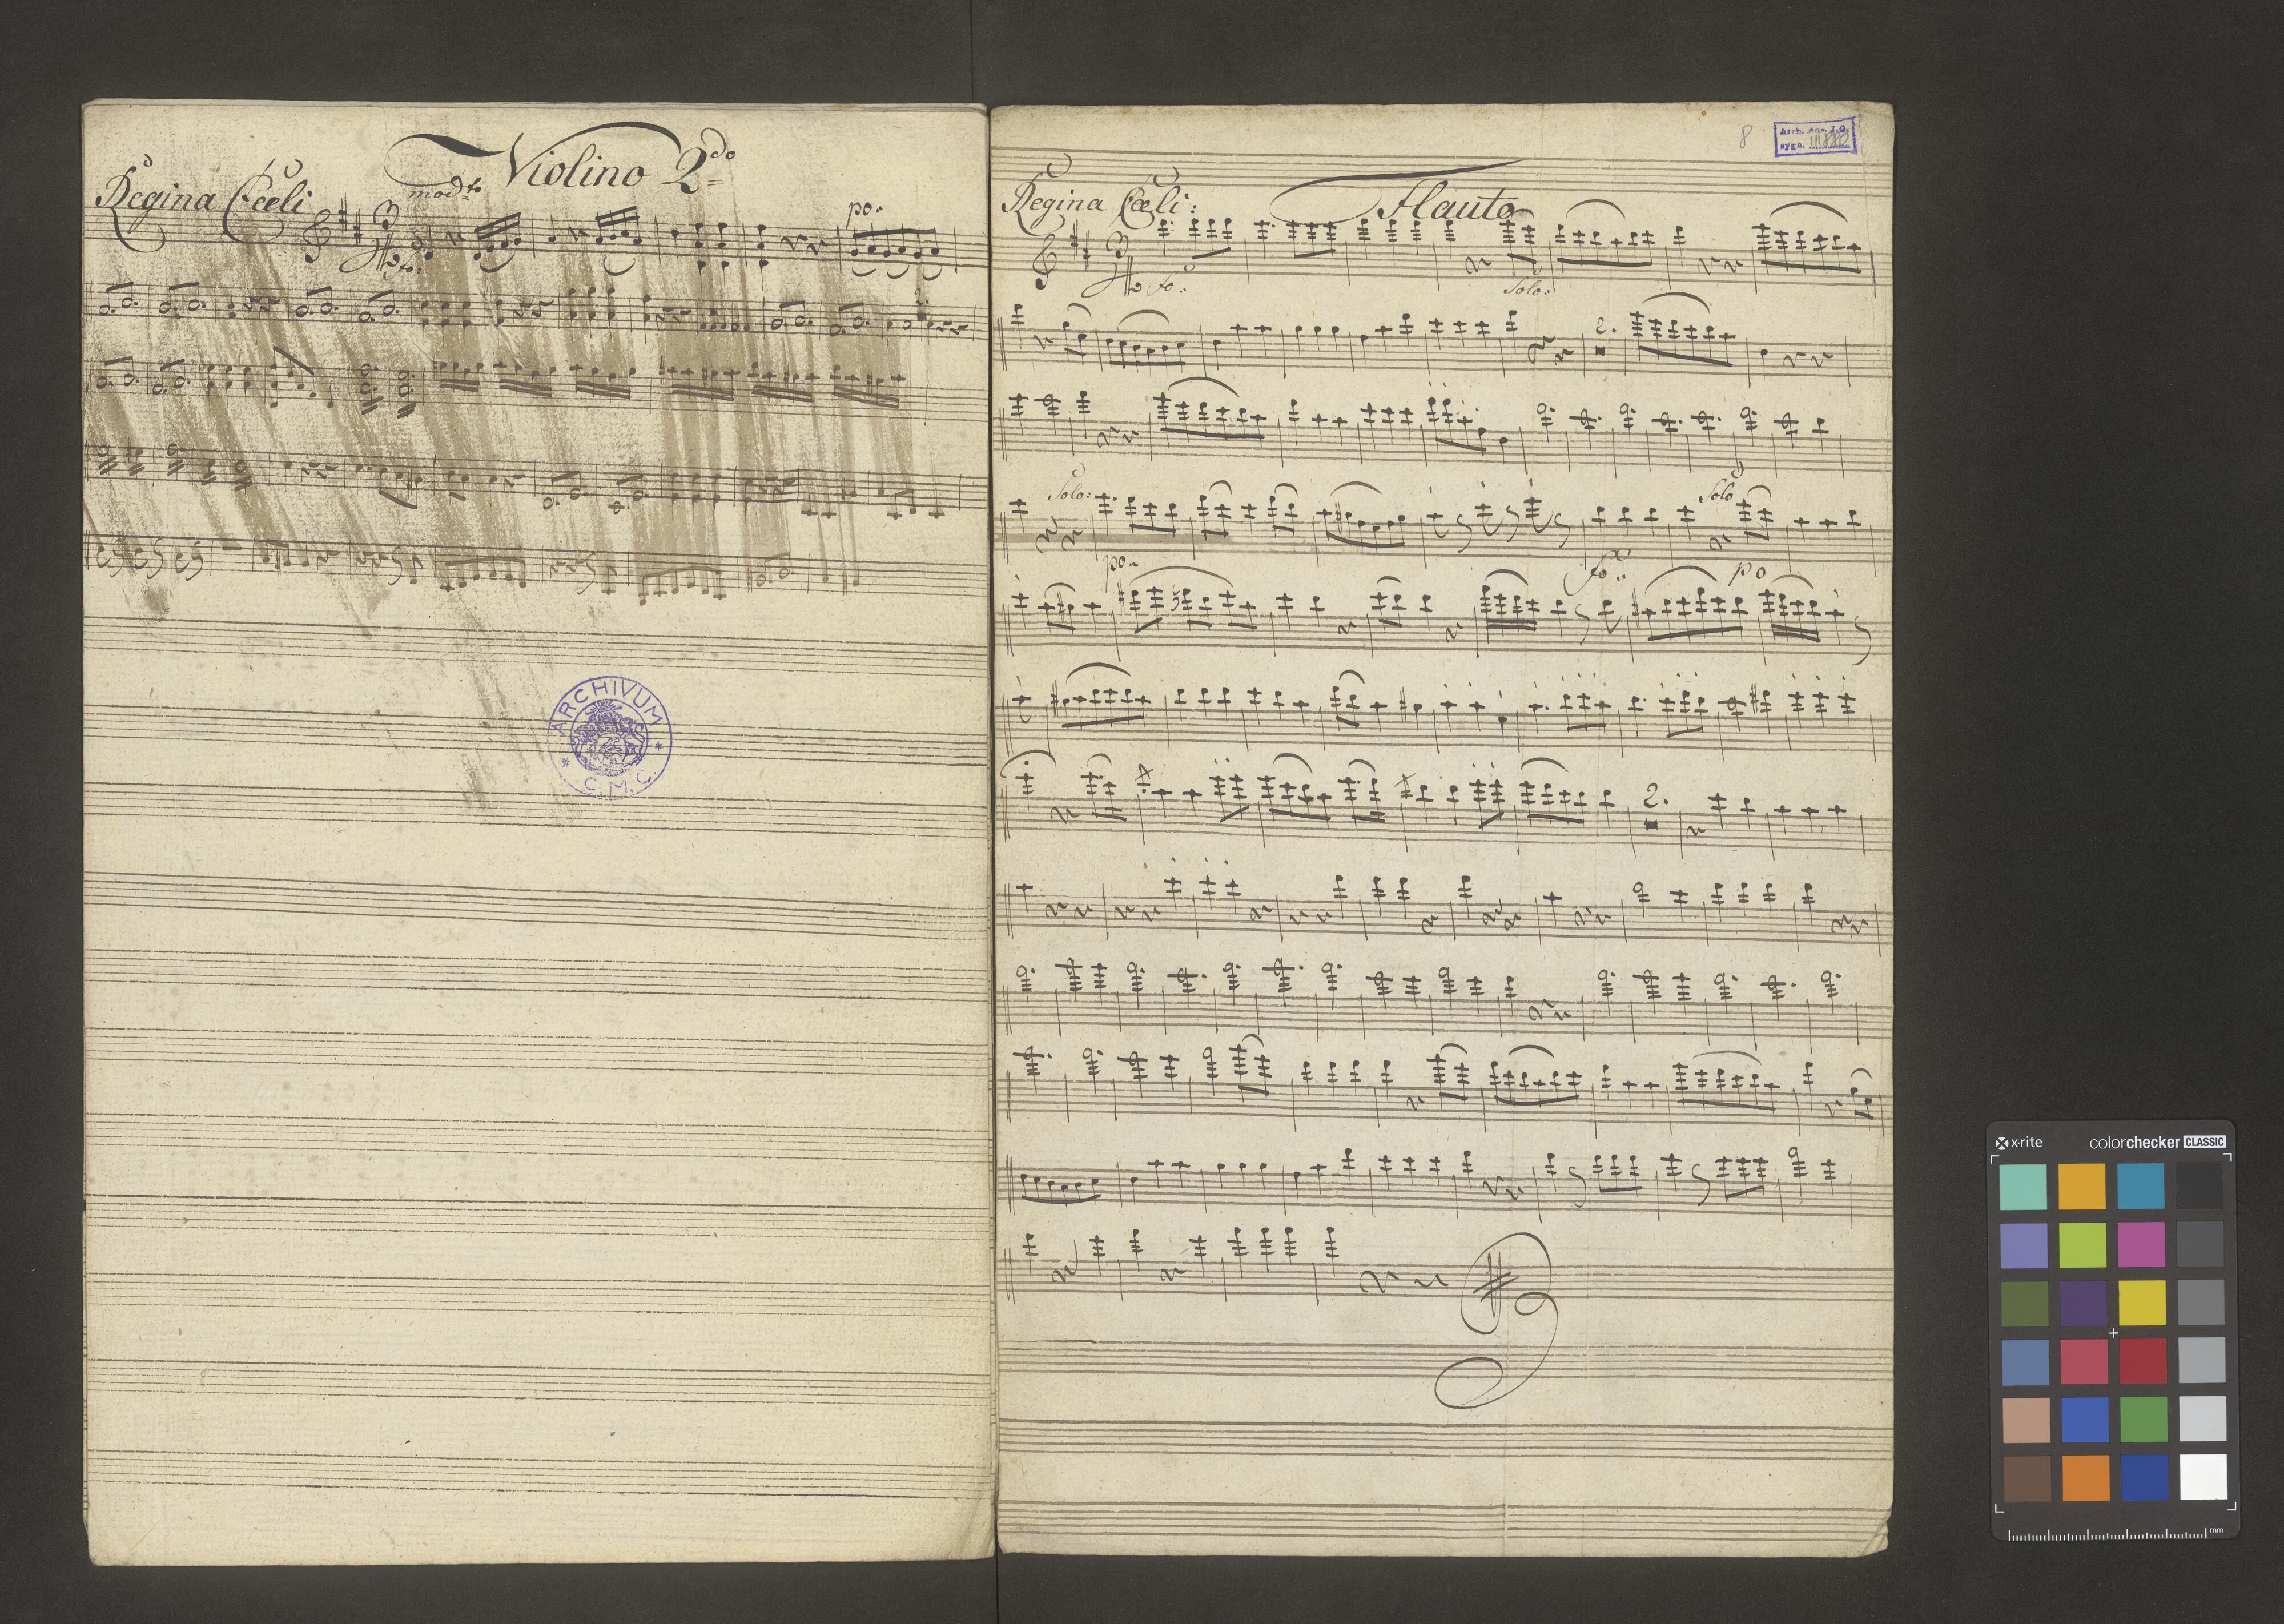 Violino 2do
Regina Cœli
modto
3
4
fo:
po:
2.
ARCHIVUM
C. M. C.
8
Arch. J. G.
sygn. III
Regina Cœli:
Flauto
3
4
fo:
Solo:
2.
Solo:
Solo
po:
fo:
po
2.
x-rite
colorchecker CLASSIC
mm